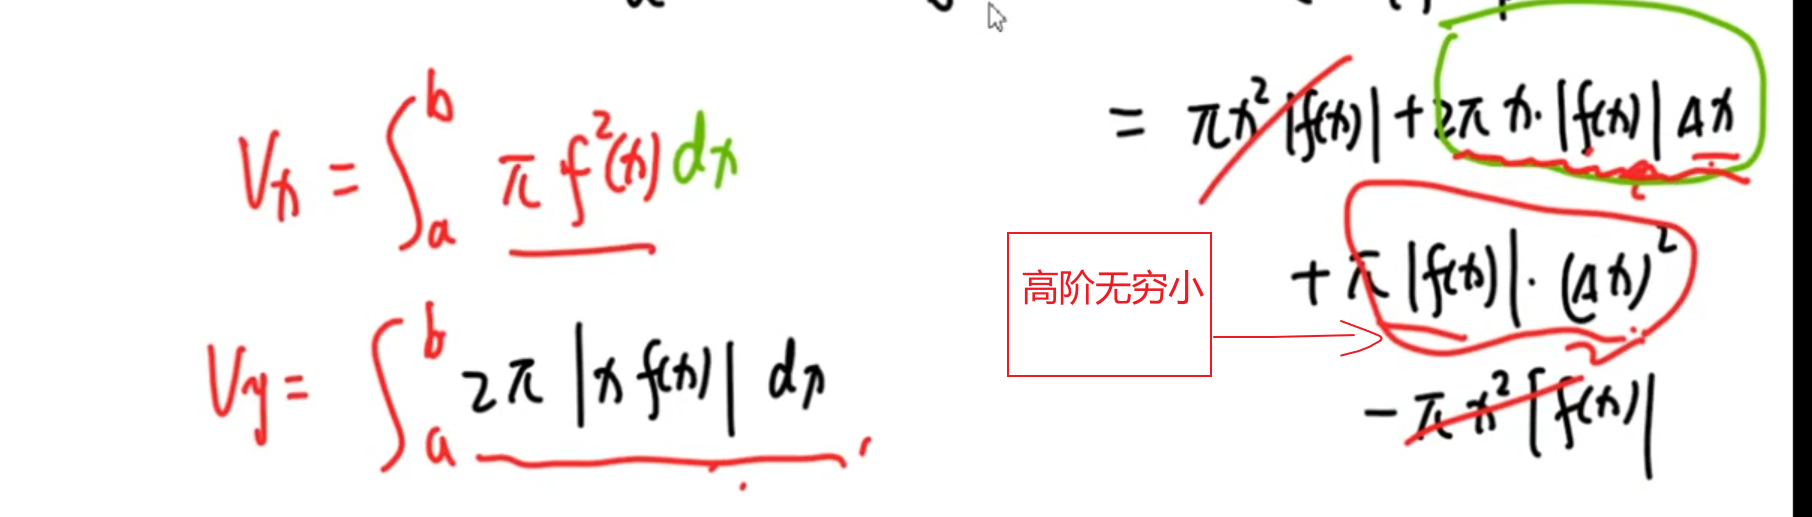 Vx = ∫_a^b π f²(x) dx
Vy = ∫_a^b 2π |x f(x)| dx
= πx² |f(x)| + 2π x · |f(x)| Δx
+ π |f(x)| · (Δx)²
- πx² |f(x)|
高阶无穷小